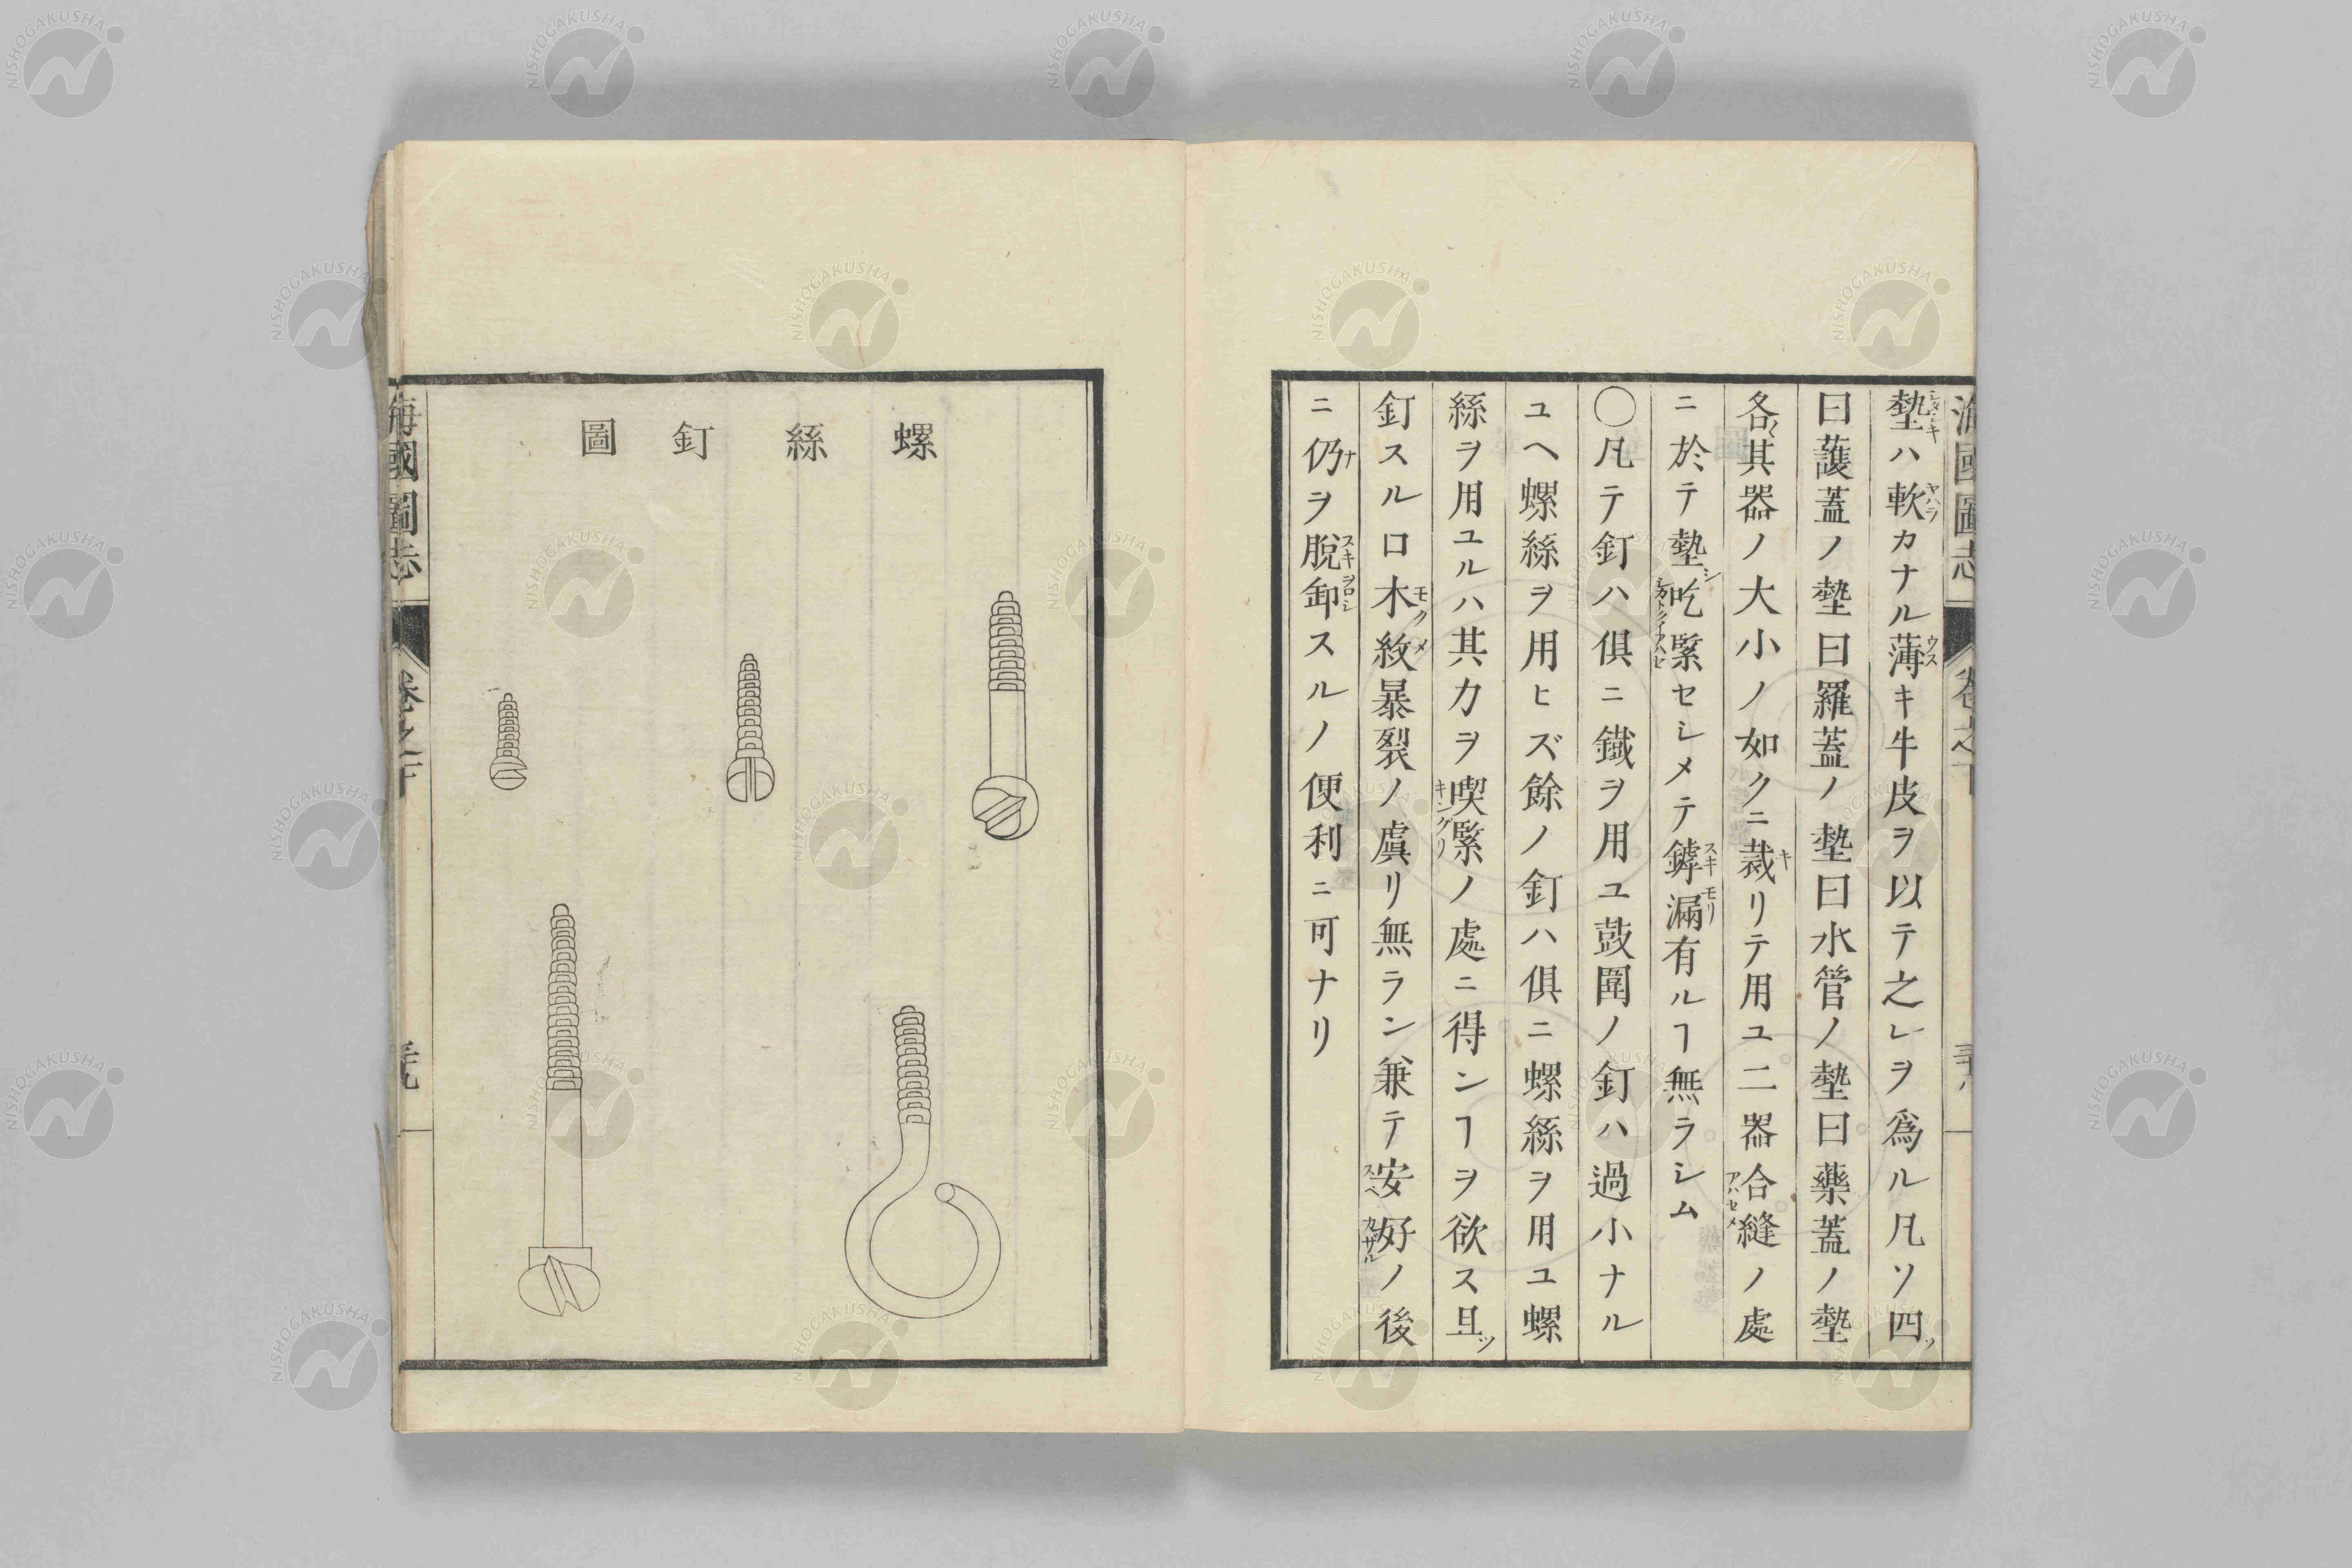 墊ハ軟カナル薄キ牛皮ヲ以テ之レヲ爲ル凡ソ四
曰護蓋ノ墊曰羅蓋ノ墊曰水管ノ墊曰藥蓋ノ墊
各其器ノ大小ノ如クニ裁リテ用ユ二器合縫ノ處
ニ於テ墊吃緊セシメテ鎼漏有ルヿ無ラシム
〇凡テ釘ハ俱ニ鐵ヲ用ユ鼓圍ノ釘ハ過小ナル
ユヘ螺絲ヲ用ヒズ餘ノ釘ハ俱ニ螺絲ヲ用ユ螺
絲ヲ用ユルハ其力ヲ喫緊ノ處ニ得ンヿヲ欲ス且
釘スルロ木紋暴裂ノ虞リ無ラン兼テ安好ノ後
ニ仍ヲ脫卸スルノ便利ニ可ナリ
螺絲釘圖
海國圖志
卷之
NISHOGAKUSHA